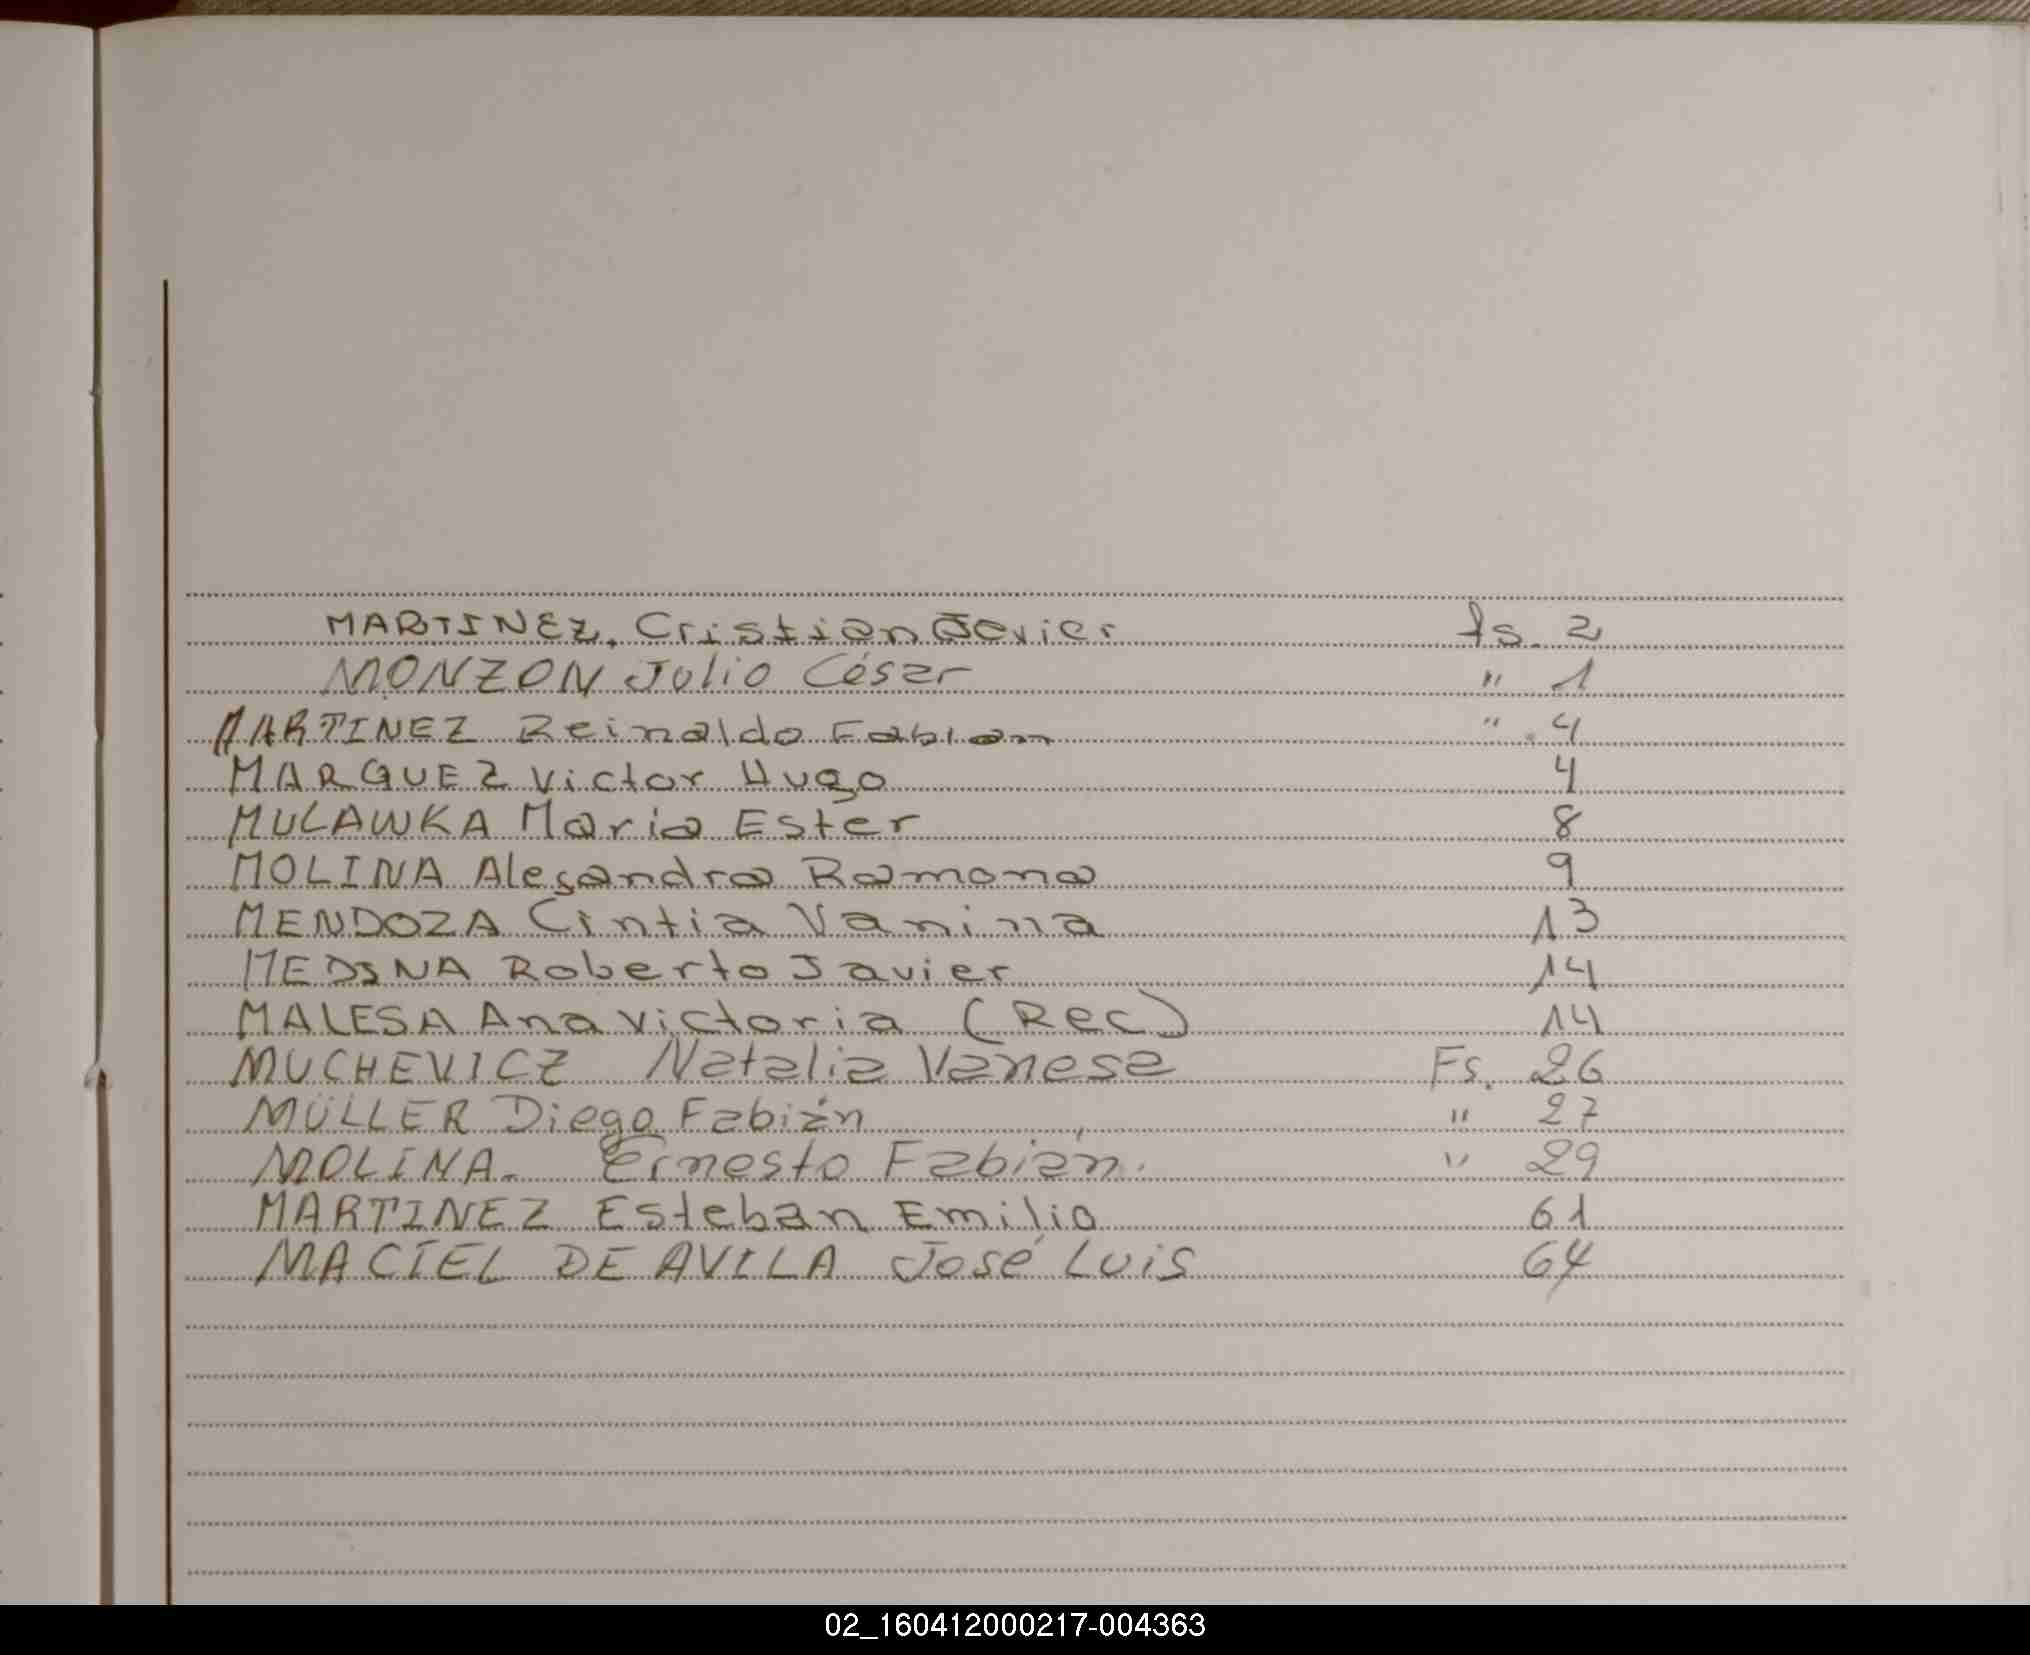 MARTINEZ, Cristian Javier fs. 2
MONZON Julio César " 1
MARTINEZ Reinaldo Fabian " 4
MARQUEZ Victor Hugo 4
MULAWKA Maria Ester 8
MOLINA Alejandra Ramona 9
MENDOZA Cintia Vanina 13
MEDINA Roberto Javier 14
MALESA Ana Victoria (Rec) 14
MUCHEVICZ Natalia Vanesa Fs. 26
MÜLLER Diego Fabián " 27
MOLINA. Ernesto Fabián. " 29
MARTINEZ Esteban Emilio 61
MACIEL DE AVILA José Luis 64
02_160412000217-004363